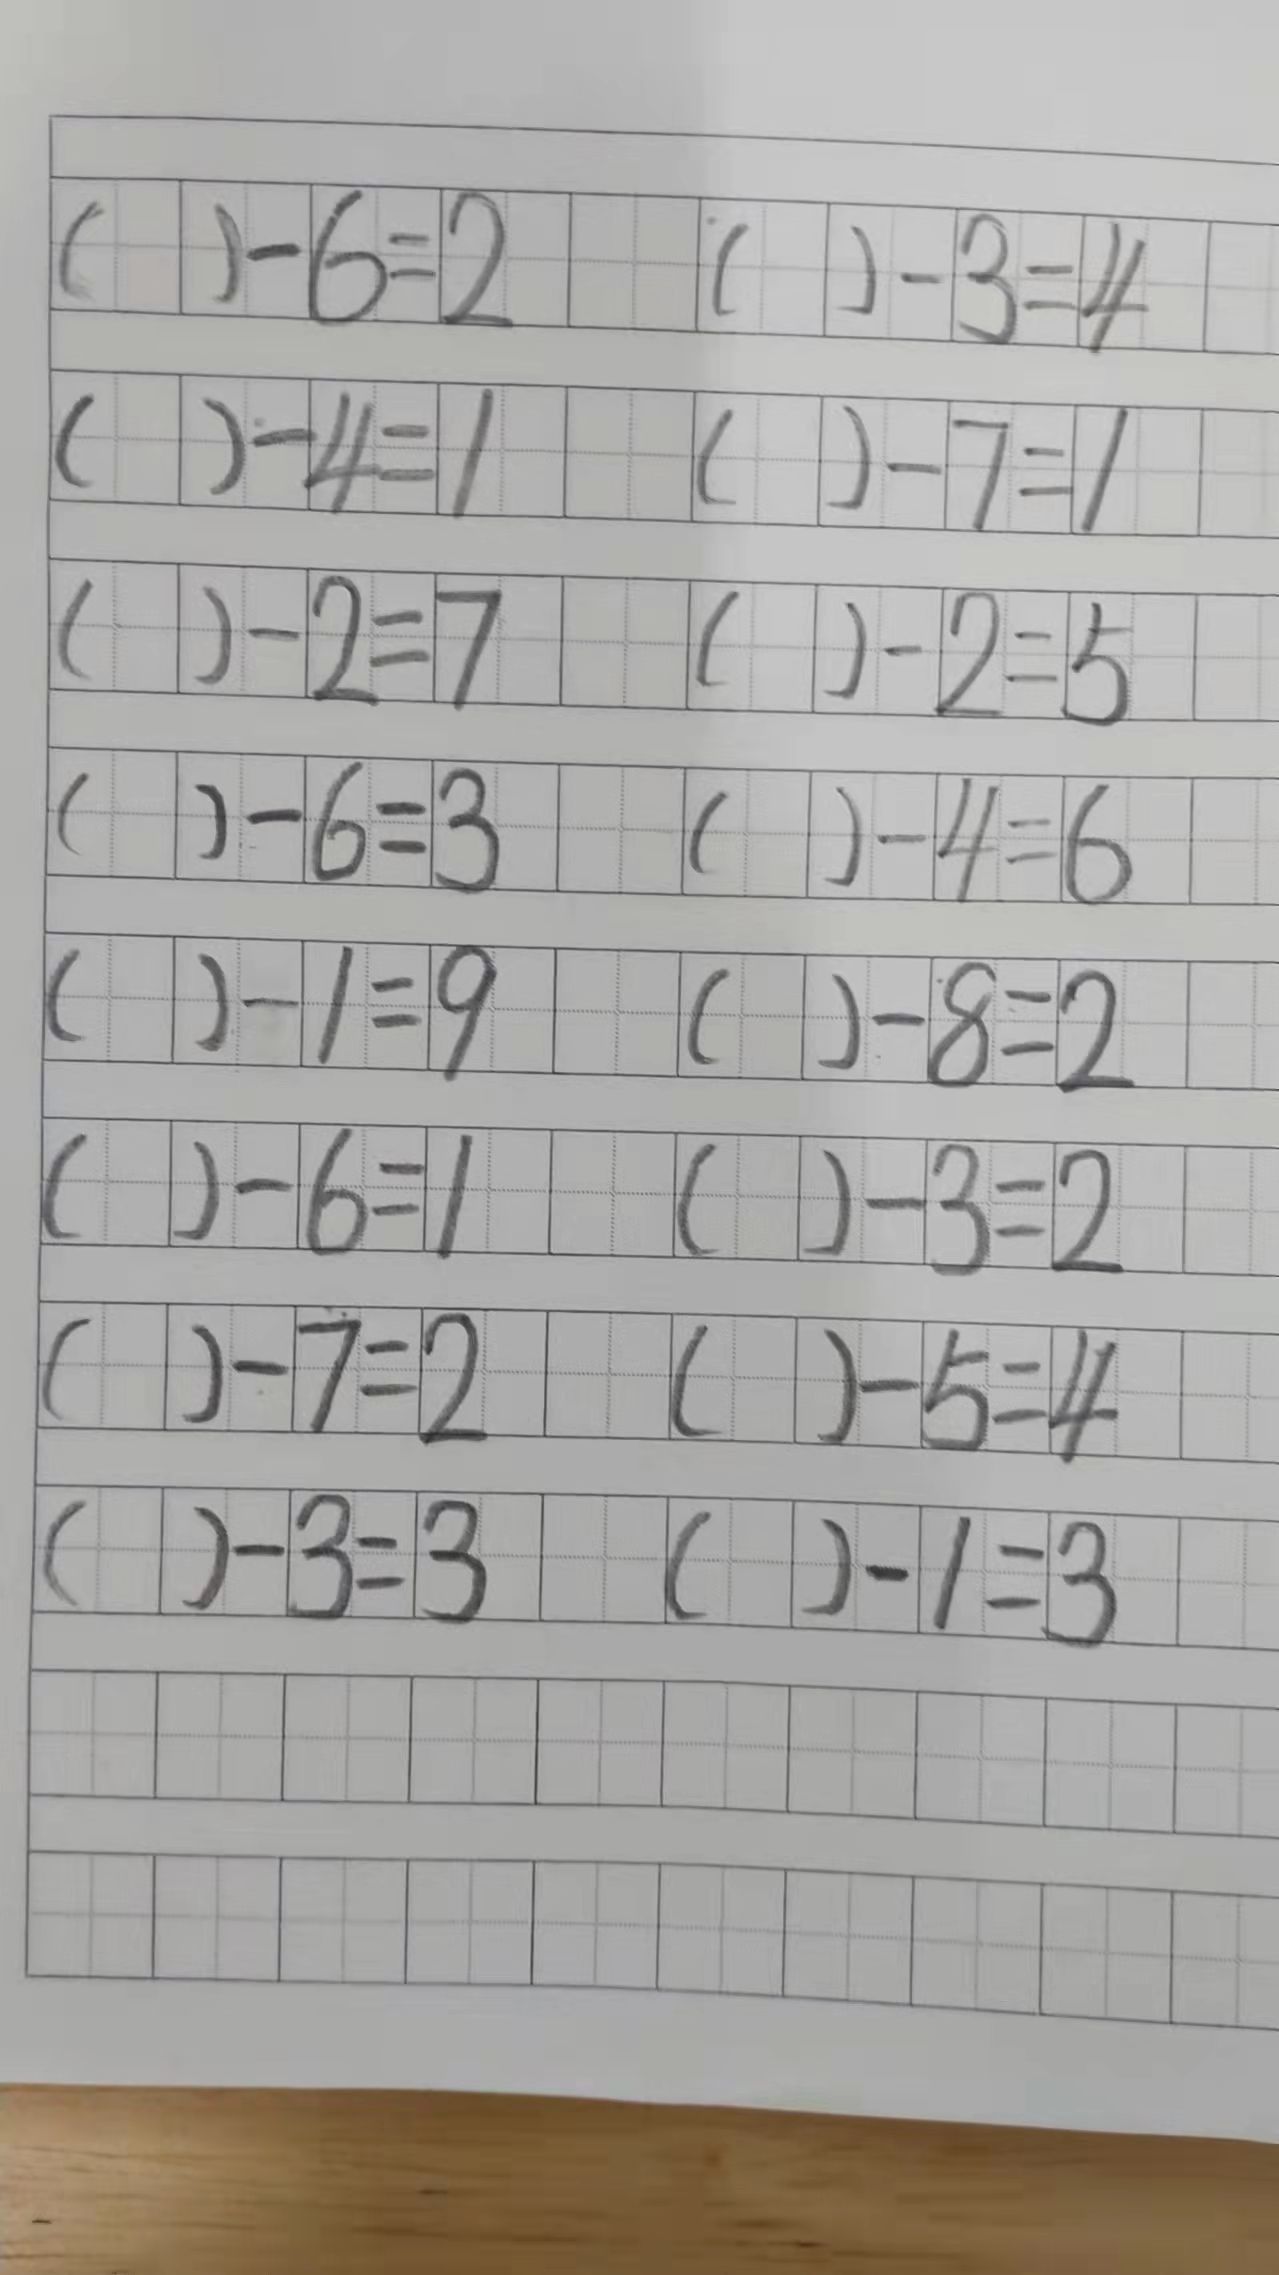 ( )-6=2 ( )-3=4
( )-4=1 ( )-7=1
( )-2=7 ( )-2=5
( )-6=3 ( )-4=6
( )-1=9 ( )-8=2
( )-6=1 ( )-3=2
( )-7=2 ( )-5=4
( )-3=3 ( )-1=3